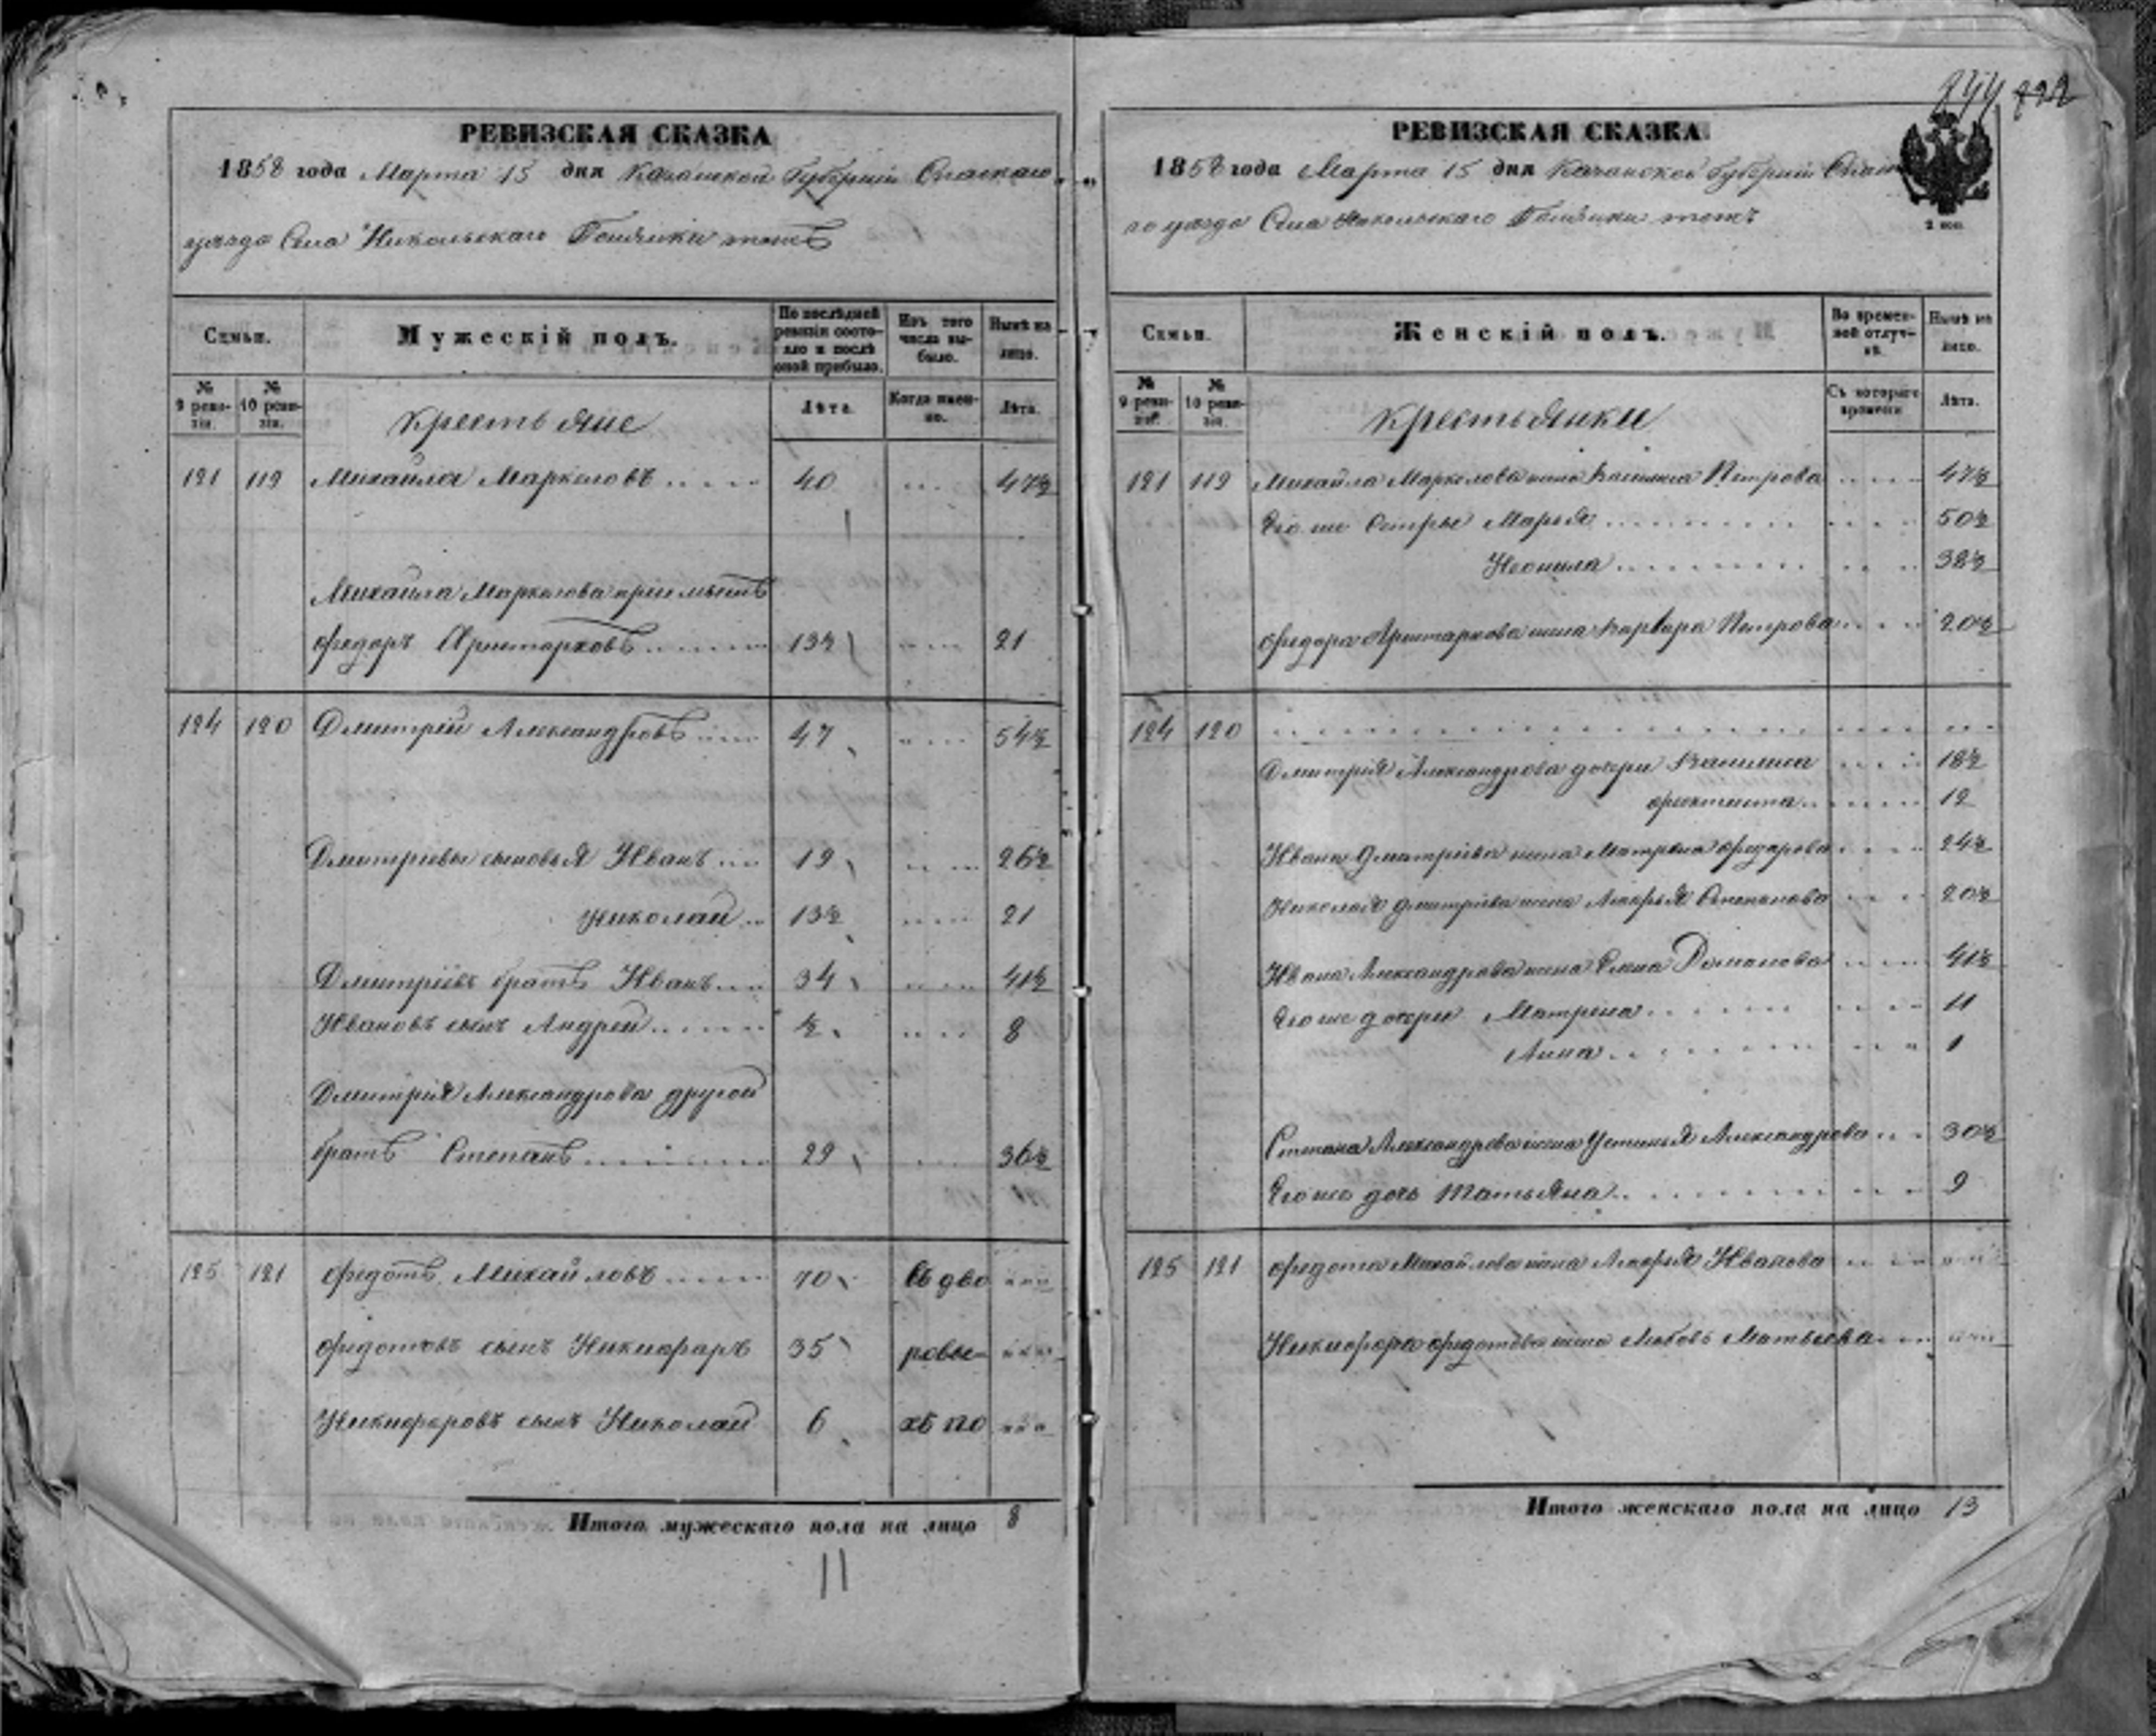 244 222
РЕВИЗСКАЯ СКАЗКА
1858 года Марта 15 дня Казанской Губерніи Спаскаго
уезда Села Никольскаго тожъ
Семьи. Мужескій полъ. По послѣдней ревизіи состояло и послѣ оной прибыло. Изъ того числа выбыло. Нынѣ на лицо.
№ 9 ревизіи. № 10 ревизіи. Крестьяне Лѣта. Когда именно. Лѣта.
121 119 Михайла Маркеловъ 40 47½
Михайла Маркелова приемышъ
Федоръ Аристарховъ 13½ 21
124 120 Дмитрей Александровъ 47 54½
Дмитріевы сыновья Иванъ 19 26½
Николай 13½ 21
Дмитріевъ братъ Иванъ 34 41½
Ивановъ сынъ Андрей ½ 8
Дмитрія Александрова другой
братъ Степанъ 29 36½
125 121 Федотъ Михайловъ 70 въ дво
Федотовъ сынъ Никифаръ 35 ровы
Никифоровъ сынъ Николай 6 хъ по
Итого мужескаго пола на лицо 8
11
РЕВИЗСКАЯ СКАЗКА
1858 года Марта 15 дня Казанской Губерніи Спаска
го уезда Села Никольскаго тожъ
2 коп.
Семьи. Женскій полъ. Во временной отлучкѣ. Нынѣ на лицо.
№ 9 ревизіи. № 10 ревизіи. Крестьянки Съ котораго времени Лѣта.
121 119 Михайла Маркелова жена Василиса Петрова 47½
Его же Сестры Марья 50½
Неонила 38½
Федора Аристархова жена Варвара Петрова 20½
124 120
Дмитрія Александрова дочери Василиса 18½
Феоктиста 12
Ивана Дмитріева жена Матрена Федарова 24½
Николая Дмитріева жена Марья Степанова 20½
Ивана Александрова жена Елена Романова 41½
Его же дочери Матрена 11
Анна 1
Степана Александрова жена Устинья Александрова 30½
Его же дочь Татьяна 9
125 121 Федота Михайлова жена Марья Иванова
Никифора Федотова жена Любовь Матвеева
Итого женскаго пола на лицо 13